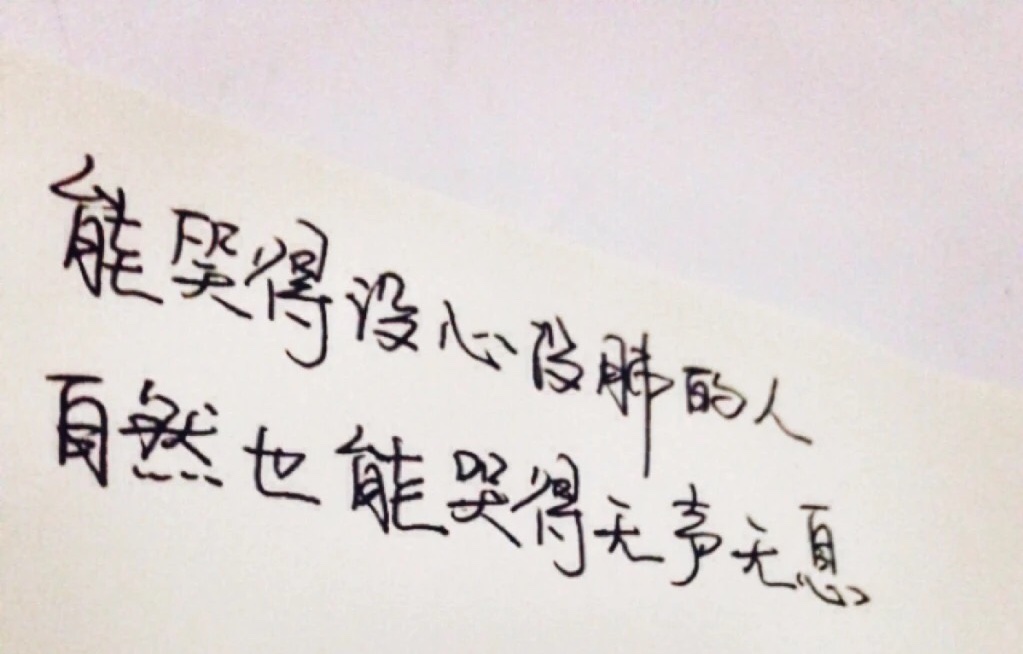 能哭得没心没肺的人
自然也能哭得无声无息